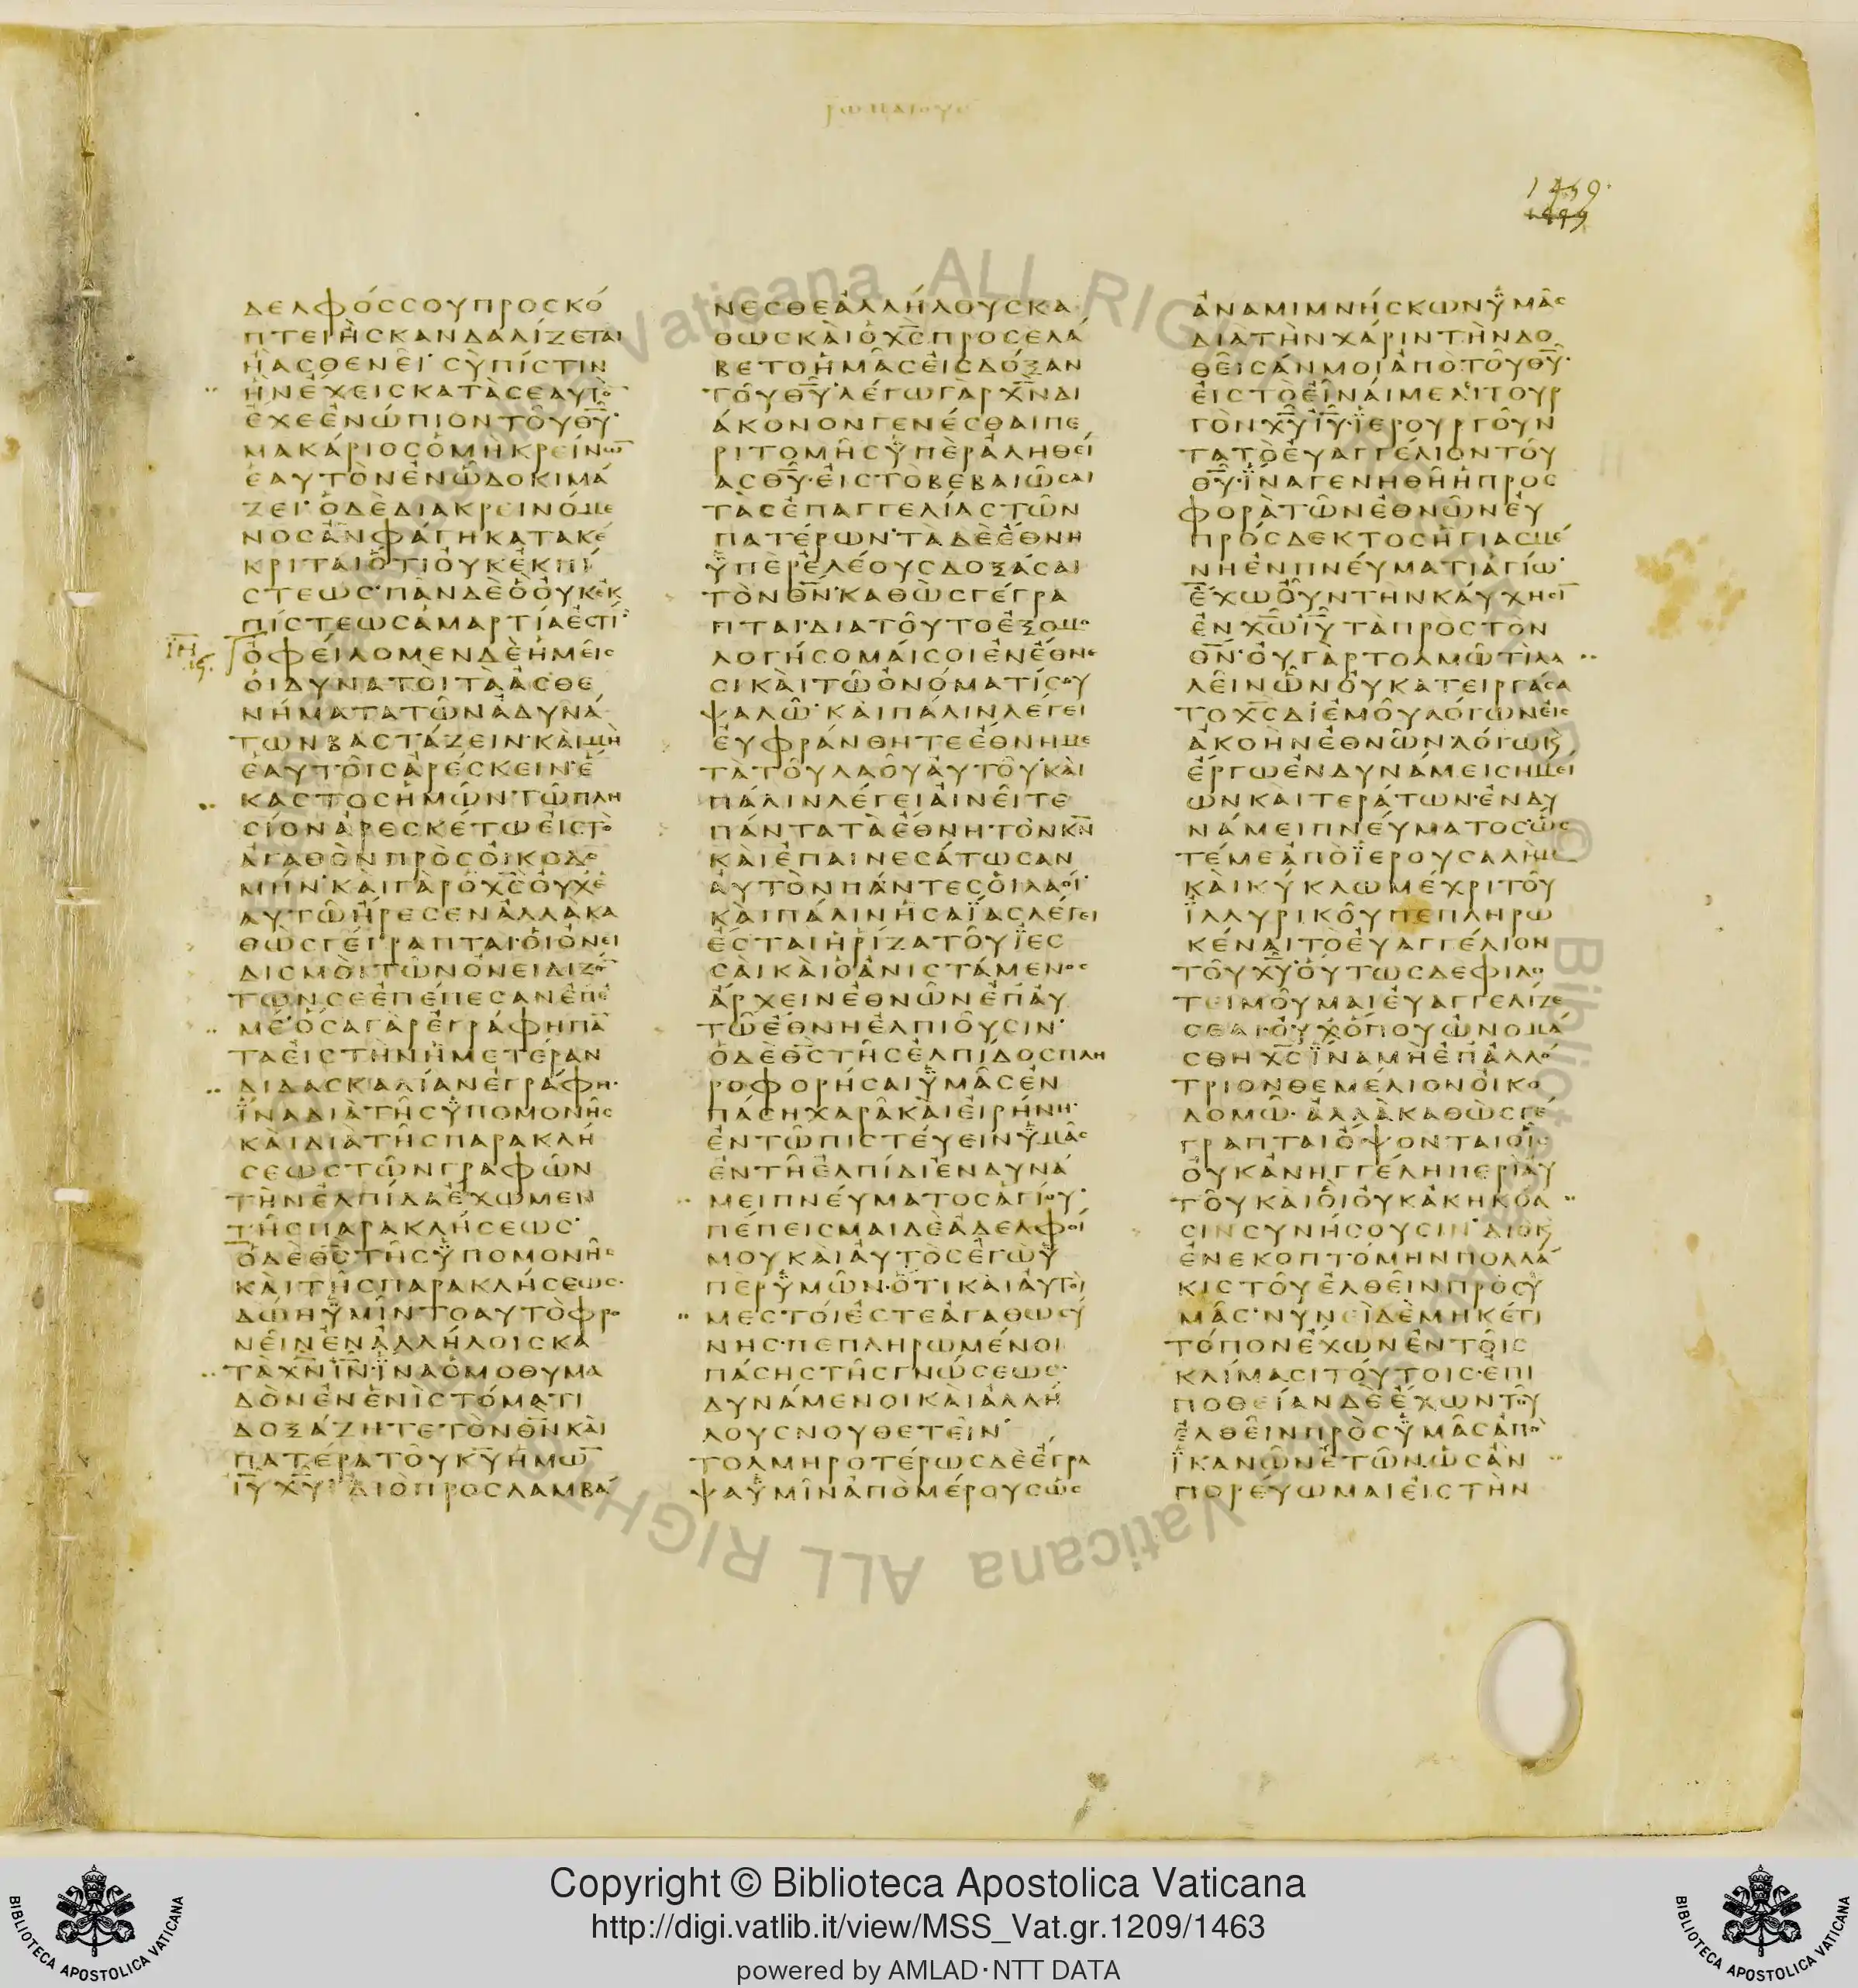 ΔΕΛΦΟССΟΥΠΡΟСΚΟ
ΠΤΕΙΗСΚΑΝΔΑΛΙΖΕΤΑΙ
ΗΑСΘΕΝΕΙ СΥΠΙСΤΙΝ
ΗΝΕΧΕΙСΚΑΤΑСΕΑΥΤΟ̅
ΕΧΕΕΝΩΠΙΟΝΤΟΥΘ̅Υ̅
ΜΑΚΑΡΙΟСΟΜΗΚΡΕΙΝΩ̅
ΕΑΥΤΟΝΕΝΩΔΟΚΙΜΑ
ΖΕΙ ΟΔΕΔΙΑΚΡΕΙΝΟΜΕ
ΝΟСΑΝΦΑΓΗΚΑΤΑΚΕ
ΚΡΙΤΑΙΟΤΙΟΥΚΕΚΠΙ
СΤΕΩС ΠΑΝΔΕΟΟΥΚΕΚ
ΠΙСΤΕΩСΑΜΑΡΤΙΑΕСΤΙ
ΟΦΕΙΛΟΜΕΝΔΕΗΜΕΙС
ΟΙΔΥΝΑΤΟΙΤΑΑСΘΕ
ΝΗΜΑΤΑΤΩΝΑΔΥΝΑ
ΤΩΝΒΑСΤΑΖΕΙΝ ΚΑΙΜΗ
ΕΑΥΤΟΙСΑΡΕСΚΕΙΝ Ε
ΚΑСΤΟСΗΜΩΝ ΤΩΠΛΗ
СΙΟΝΑΡΕСΚΕΤΩΕΙСΤΟ
ΑΓΑΘΟΝΠΡΟСΟΙΚΟΔΟ
ΜΗΝ ΚΑΙΓΑΡΟΧ̅С̅ΟΥΧΕ
ΑΥΤΩΗΡΕСΕΝΑΛΛΑΚΑ
ΘΩСΓΕΓΡΑΠΤΑΙ ΟΙΟΝΕΙ
ΔΙСΜΟΙΤΩΝΟΝΕΙΔΙΖΟ̅
ΤΩΝСΕΕΠΕΠΕСΑΝΕΠΕ
ΜΕ ΟСΑΓΑΡΕΓΡΑΦΗΠΑ̅
ΤΑΕΙСΤΗΝΗΜΕΤΕΡΑΝ
ΔΙΔΑСΚΑΛΙΑΝΕΓΡΑΦΗ
ΙΝΑΔΙΑΤΗСΥΠΟΜΟΝΗС
ΚΑΙΔΙΑΤΗСΠΑΡΑΚΛΗ
СΕΩСΤΩΝΓΡΑΦΩΝ
ΤΗΝΕΛΠΙΔΑΕΧΩΜΕΝ
ΤΗСΠΑΡΑΚΛΗСΕΩС
ΟΔΕΘ̅С̅ΤΗСΥΠΟΜΟΝΗС
ΚΑΙΤΗСΠΑΡΑΚΛΗСΕΩС
ΔΩΗΥΜΙΝΤΟΑΥΤΟΦΡΟ
ΝΕΙΝΕΝΑΛΛΗΛΟΙСΚΑ
ΤΑΧ̅Ν̅Ι̅Ν̅ ΙΝΑΟΜΟΘΥΜΑ
ΔΟΝΕΝΕΝΙСΤΟΜΑΤΙ
ΔΟΞΑΖΗΤΕΤΟΝΘ̅Ν̅ΚΑΙ
ΠΑΤΕΡΑΤΟΥΚ̅Υ̅ΗΜΩ̅
Ι̅Υ̅Χ̅Υ̅ ΔΙΟΠΡΟСΛΑΜΒΑ
ΝΕСΘΕΑΛΛΗΛΟΥСΚΑ
ΘΩСΚΑΙΟΧ̅С̅ΠΡΟСΕΛΑ
ΒΕΤΟΗΜΑСΕΙСΔΟΞΑΝ
ΤΟΥΘ̅Υ̅ ΛΕΓΩΓΑΡΧ̅Ν̅ΔΙ
ΑΚΟΝΟΝΓΕΝΕСΘΑΙΠΕ
ΡΙΤΟΜΗСΥΠΕΡΑΛΗΘΕΙ
ΑСΘ̅Υ̅ ΕΙСΤΟΒΕΒΑΙΩСΑΙ
ΤΑСΕΠΑΓΓΕΛΙΑСΤΩΝ
ΠΑΤΕΡΩΝ ΤΑΔΕΕΘΝΗ
ΥΠΕΡΕΛΕΟΥСΔΟΞΑСΑΙ
ΤΟΝΘ̅Ν̅ ΚΑΘΩСΓΕΓΡΑ
ΠΤΑΙ ΔΙΑΤΟΥΤΟΕΞΟΜΟ
ΛΟΓΗСΟΜΑΙСΟΙΕΝΕΘΝΕ
СΙΚΑΙΤΩΟΝΟΜΑΤΙСΟΥ
ΨΑΛΩ ΚΑΙΠΑΛΙΝΛΕΓΕΙ
ΕΥΦΡΑΝΘΗΤΕΕΘΝΗΜΕ
ΤΑΤΟΥΛΑΟΥΑΥΤΟΥ ΚΑΙ
ΠΑΛΙΝΛΕΓΕΙΑΙΝΕΙΤΕ
ΠΑΝΤΑΤΑΕΘΝΗ ΤΟΝΚ̅Ν̅
ΚΑΙΕΠΑΙΝΕСΑΤΩСΑΝ
ΑΥΤΟΝΠΑΝΤΕСΟΙΛΑΟΙ
ΚΑΙΠΑΛΙΝΗСΑΪΑСΛΕΓΕΙ
ΕСΤΑΙΗΡΙΖΑΤΟΥΪΕС
СΑΙΚΑΙΟΑΝΙСΤΑΜΕΝΟС
ΑΡΧΕΙΝΕΘΝΩΝΕΠΑΥ
ΤΩΕΘΝΗΕΛΠΙΟΥСΙΝ
ΟΔΕΘ̅С̅ΤΗСΕΛΠΙΔΟСΠΛΗ
ΡΟΦΟΡΗСΑΙΥΜΑСΕΝ
ΠΑСΗΧΑΡΑΚΑΙΕΙΡΗΝΗ
ΕΝΤΩΠΙСΤΕΥΕΙΝΥΜΑС
ΕΝΤΗΕΛΠΙΔΙΕΝΔΥΝΑ
ΜΕΙΠΝΕΥΜΑΤΟСΑΓΙΟΥ
ΠΕΠΕΙСΜΑΙΔΕΑΔΕΛΦΟΙ
ΜΟΥΚΑΙΑΥΤΟСΕΓΩΥ
ΠΕΡΥΜΩΝ ΟΤΙΚΑΙΑΥΤΟΙ
ΜΕСΤΟΙΕСΤΕΑΓΑΘΩСΥ
ΝΗС ΠΕΠΛΗΡΩΜΕΝΟΙ
ΠΑСΗСΤΗСΓΝΩСΕΩС
ΔΥΝΑΜΕΝΟΙΚΑΙΑΛΛΗ
ΛΟΥСΝΟΥΘΕΤΕΙΝ
ΤΟΛΜΗΡΟΤΕΡΩСΔΕΕΓΡΑ
ΨΑΥΜΙΝΑΠΟΜΕΡΟΥСΩС
ΑΝΑΜΙΜΝΗСΚΩΝΥΜΑС
ΔΙΑΤΗΝΧΑΡΙΝΤΗΝΔΟ
ΘΕΙСΑΝΜΟΙΑΠΟΤΟΥΘ̅Υ̅
ΕΙСΤΟΕΙΝΑΙΜΕΛΙΤΟΥΡ
ΓΟΝΧ̅Υ̅Ι̅Υ̅ ΪΕΡΟΥΡΓΟΥΝ
ΤΑΤΟΕΥΑΓΓΕΛΙΟΝΤΟΥ
Θ̅Υ̅ ΪΝΑΓΕΝΗΘΗΗΠΡΟС
ΦΟΡΑΤΩΝΕΘΝΩΝΕΥ
ΠΡΟСΔΕΚΤΟСΗΓΙΑСΜΕ
ΝΗΕΝΠΝΕΥΜΑΤΙΑΓΙΩ
ΕΧΩΟΥΝΤΗΝΚΑΥΧΗСΙ̅
ΕΝΧ̅Ω̅Ι̅Υ̅ΤΑΠΡΟСΤΟΝ
Θ̅Ν̅ ΟΥΓΑΡΤΟΛΜΩΤΙΛΑ
ΛΕΙΝΩΝΟΥΚΑΤΕΙΡΓΑСΑ
ΤΟΧ̅С̅ΔΙΕΜΟΥΛΟΓΩΝΕΙС
ΑΚΟΗΝΕΘΝΩΝ ΛΟΓΩΚ
ΕΡΓΩΕΝΔΥΝΑΜΕΙСΗΜΕΙ
ΩΝΚΑΙΤΕΡΑΤΩΝ ΕΝΔΥ
ΝΑΜΕΙΠΝΕΥΜΑΤΟС ΩС
ΤΕΜΕΑΠΟΪΕΡΟΥСΑΛΗΜ
ΚΑΙΚΥΚΛΩΜΕΧΡΙΤΟΥ
ΪΛΛΥΡΙΚΟΥΠΕΠΛΗΡΩ
ΚΕΝΑΙΤΟΕΥΑΓΓΕΛΙΟΝ
ΤΟΥΧ̅Υ̅ ΟΥΤΩСΔΕΦΙΛΟ
ΤΕΙΜΟΥΜΑΙΕΥΑΓΓΕΛΙΖΕ
СΘΑΙ ΟΥΧΟΠΟΥΩΝΟΜΑ
СΘΗΧ̅С̅ΪΝΑΜΗΕΠΑΛΛΟ
ΤΡΙΟΝΘΕΜΕΛΙΟΝΟΙΚΟ
ΔΟΜΩ ΑΛΛΑΚΑΘΩСΓΕ
ΓΡΑΠΤΑΙΟΨΟΝΤΑΙΟΙС
ΟΥΚΑΝΗΓΓΕΛΗΠΕΡΙΑΥ
ΤΟΥΚΑΙΟΙΟΥΚΑΚΗΚΟΑ
СΙΝСΥΝΗСΟΥСΙΝ ΔΙΟΚ
ΕΝΕΚΟΠΤΟΜΗΝΠΟΛΛΑ
ΚΙСΤΟΥΕΛΘΕΙΝΠΡΟСΥ
ΜΑС ΝΥΝΕΙΔΕΜΗΚΕΤΙ
ΤΟΠΟΝΕΧΩΝΕΝΤΟΙС
ΚΛΙΜΑСΙΤΟΥΤΟΙС ΕΠΙ
ΠΟΘΕΙΑΝΔΕΕΧΩΝΤΟΥ
ΕΛΘΕΙΝΠΡΟСΥΜΑСΑΠΟ
ΪΚΑΝΩΝΕΤΩΝ ΩСΑΝ
ΠΟΡΕΥΩΜΑΙΕΙСΤΗΝ
Copyright © Biblioteca Apostolica Vaticana
http://digi.vatlib.it/view/MSS_Vat.gr.1209/1463
powered by AMLAD·NTT DATA